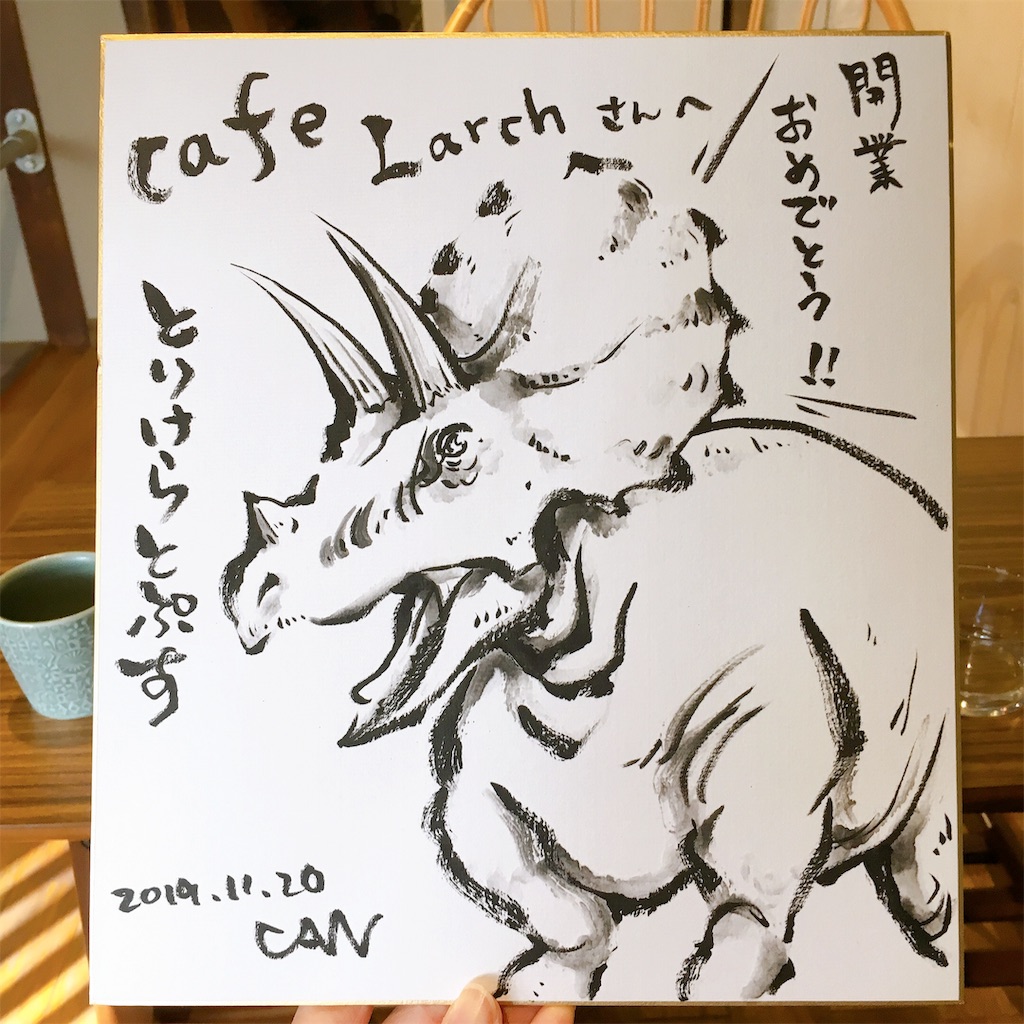 cafe Larch さんへ
開業
おめでとう!!
とりけらとぷす
2019.11.20
CAN